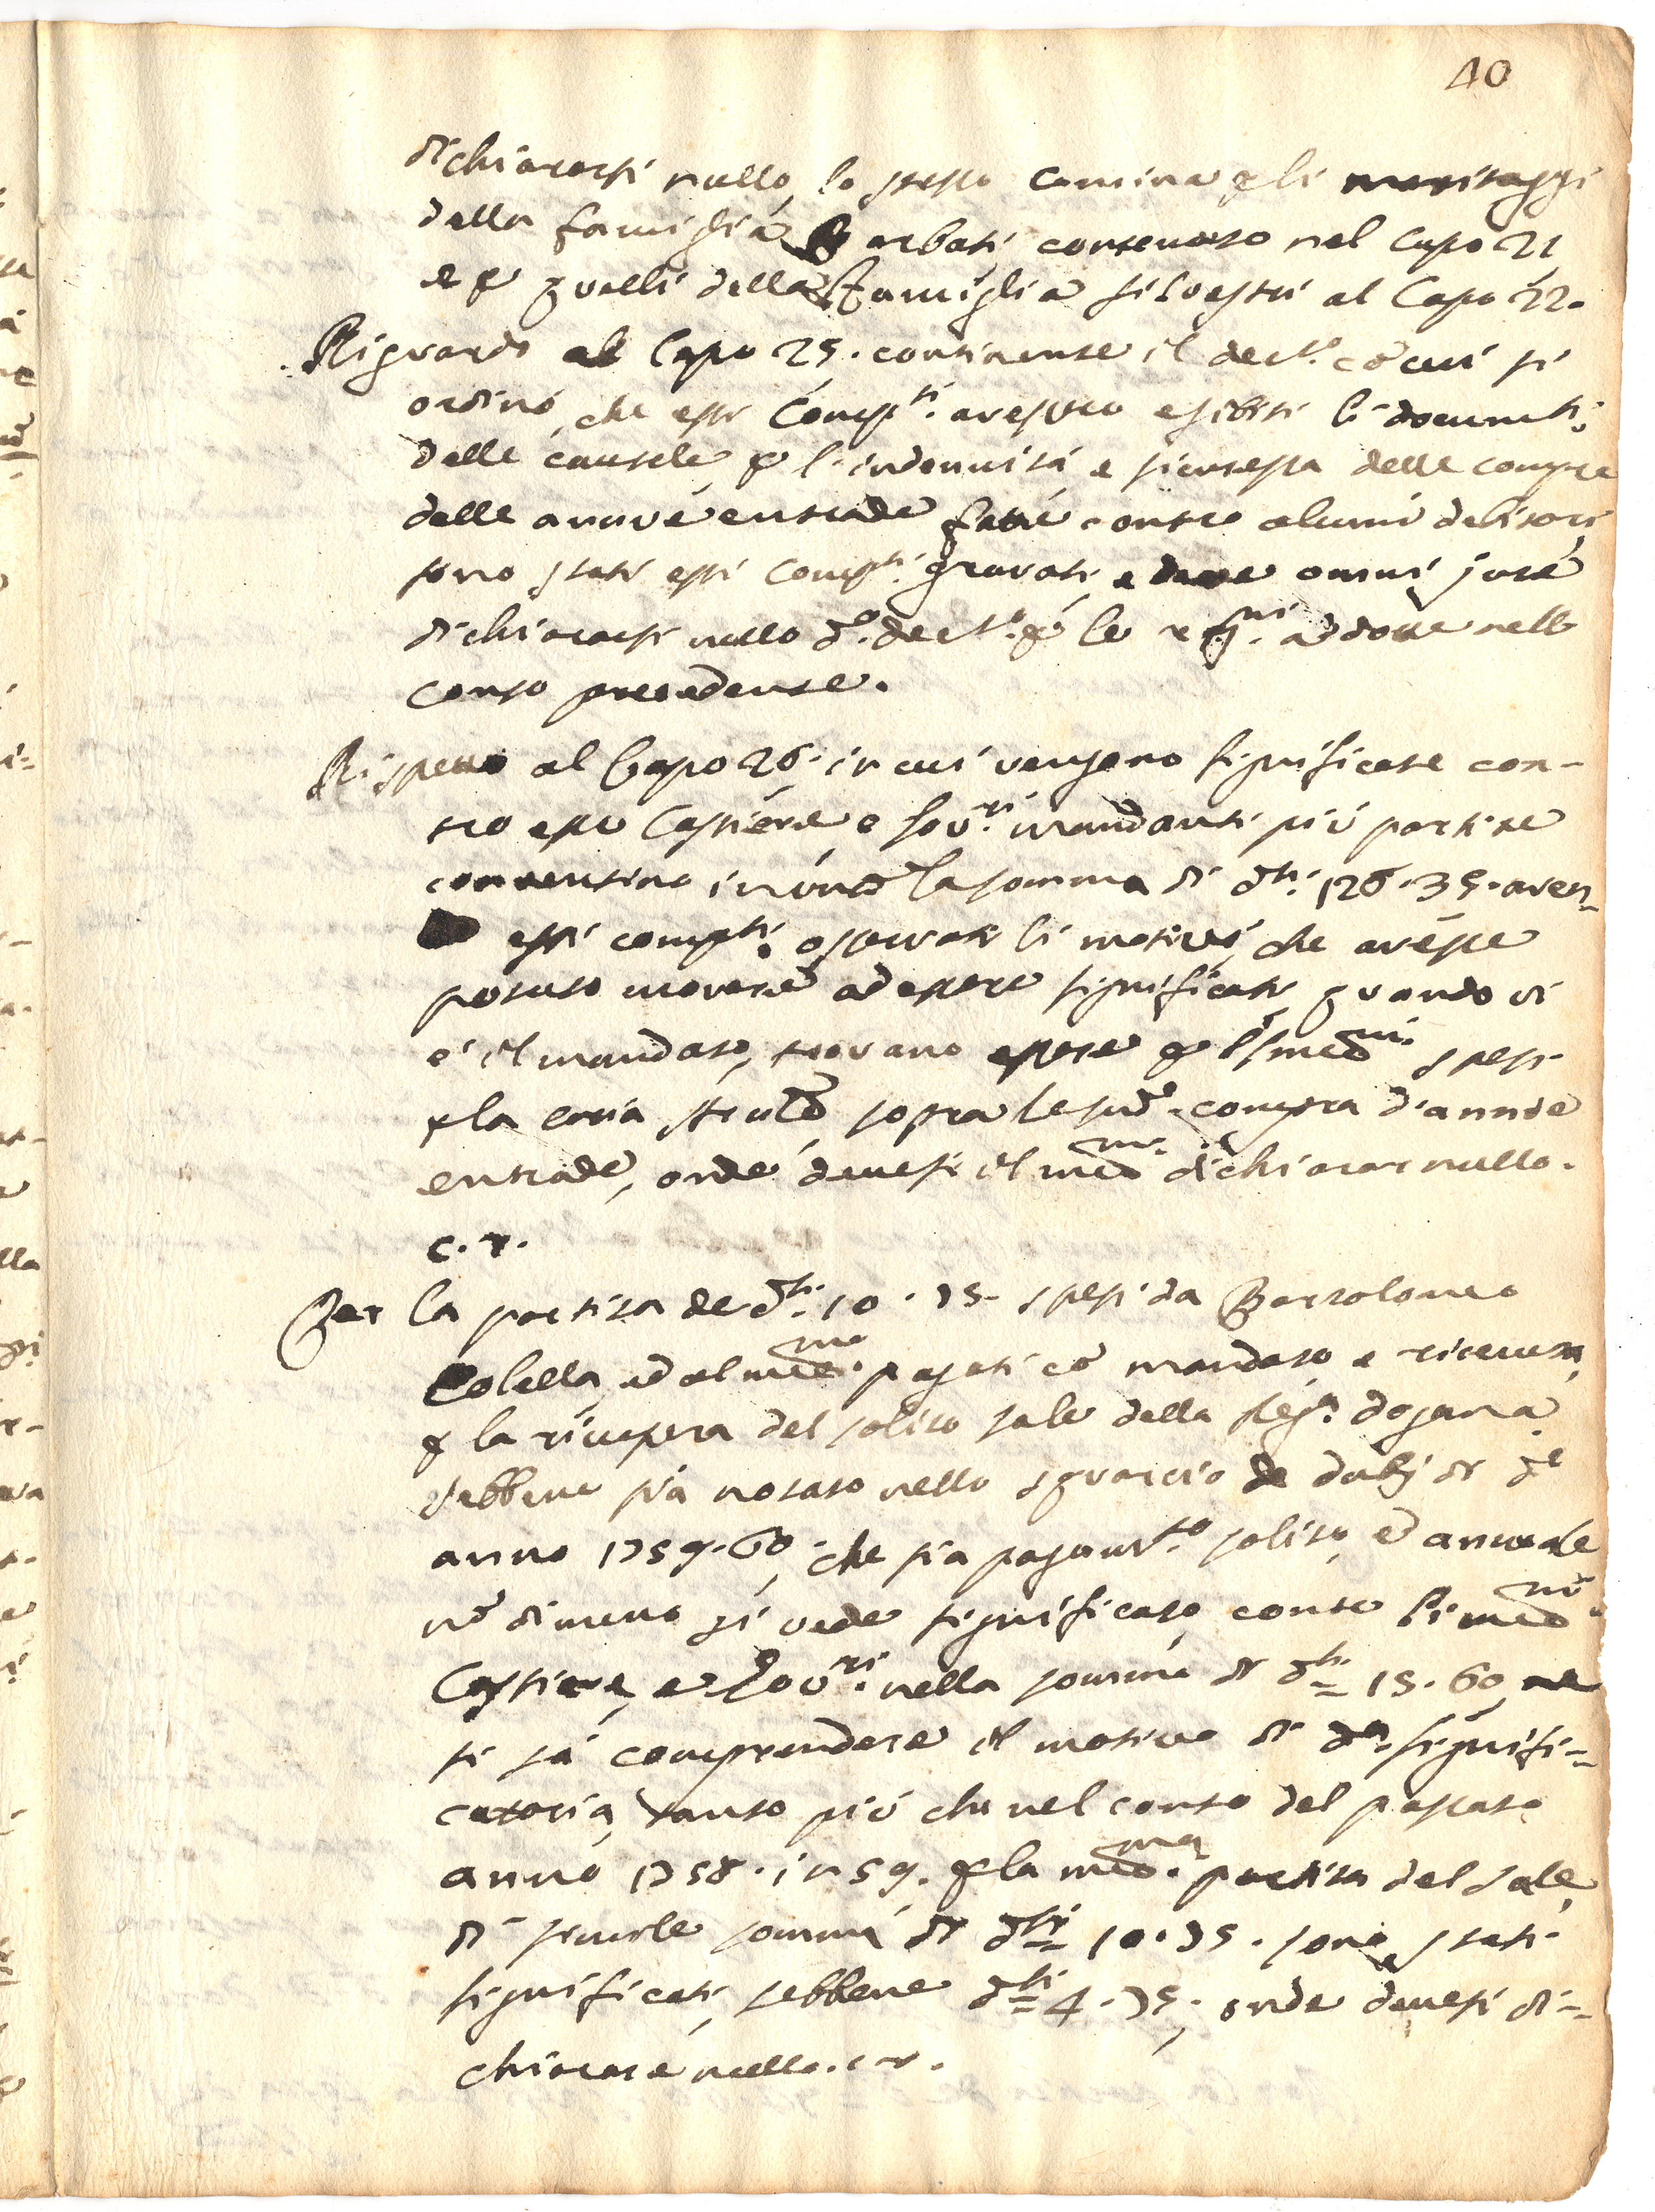 40
dichiararsi nullo, lo stesso camina p li maritaggi
della famiglia Barbati contenuto nel Capo 21
e p quelli della Famiglia Silvestri al Capo 22.
Riguardo al Capo 25. continente il decr.to cō cui si
ordinò, che essi Comp.ti avessero esibiti li documti.
delle cautele p l'indennità e sicurezza delle compre
delle annue entrade fatte contro alcuni debitori
sono stati essi Comp.ti gravati, e deve omni jure
dichiararsi nullo d.o decr.to p le rag.ni addotte nell
conto precedente.
Rispetto al Capo 26. in cui vengono significate con-
tro esso Cassiere, e Gov.ri mandanti più partite
convertino in unū la somma di d.ti 126.35. aven-
essi comp.ti osservati li motivi, che avesse
potuto movere ad essere significati, quando vi
e' il mandato, trovano essere p li med.mi spesi
p la sopra le sud.e compra d'annue
entrade, onde devesi il med.mo dichiarar nullo.
c. r.
Per la partita de d.ti 10.75. spesi da Bartolomeo
Colella, ed al med.mo pagati cō mandato, e ricevuta
p la ricupera del solito sale della Reg.a dogana
sebbene sia notato nello squarcio de dubj di d.o
anno 1759.60, che sia pagam.to solito, ed annuale
nō dimeno si vede significato contr li med.mi
Cassiere, e Gov.ri nella somma di d.ti 15.60, ne
si sà comprendere il motivo di d.a signifi-
catoria, tanto più che nel conto del passato
anno 1758. in 59. p la med.ma partita del sale
di simile somma di d.ti 10.75. sono stati
significati, sebbene d.ti 4.75, onde devesi di-
chiarare nullo. c. r.